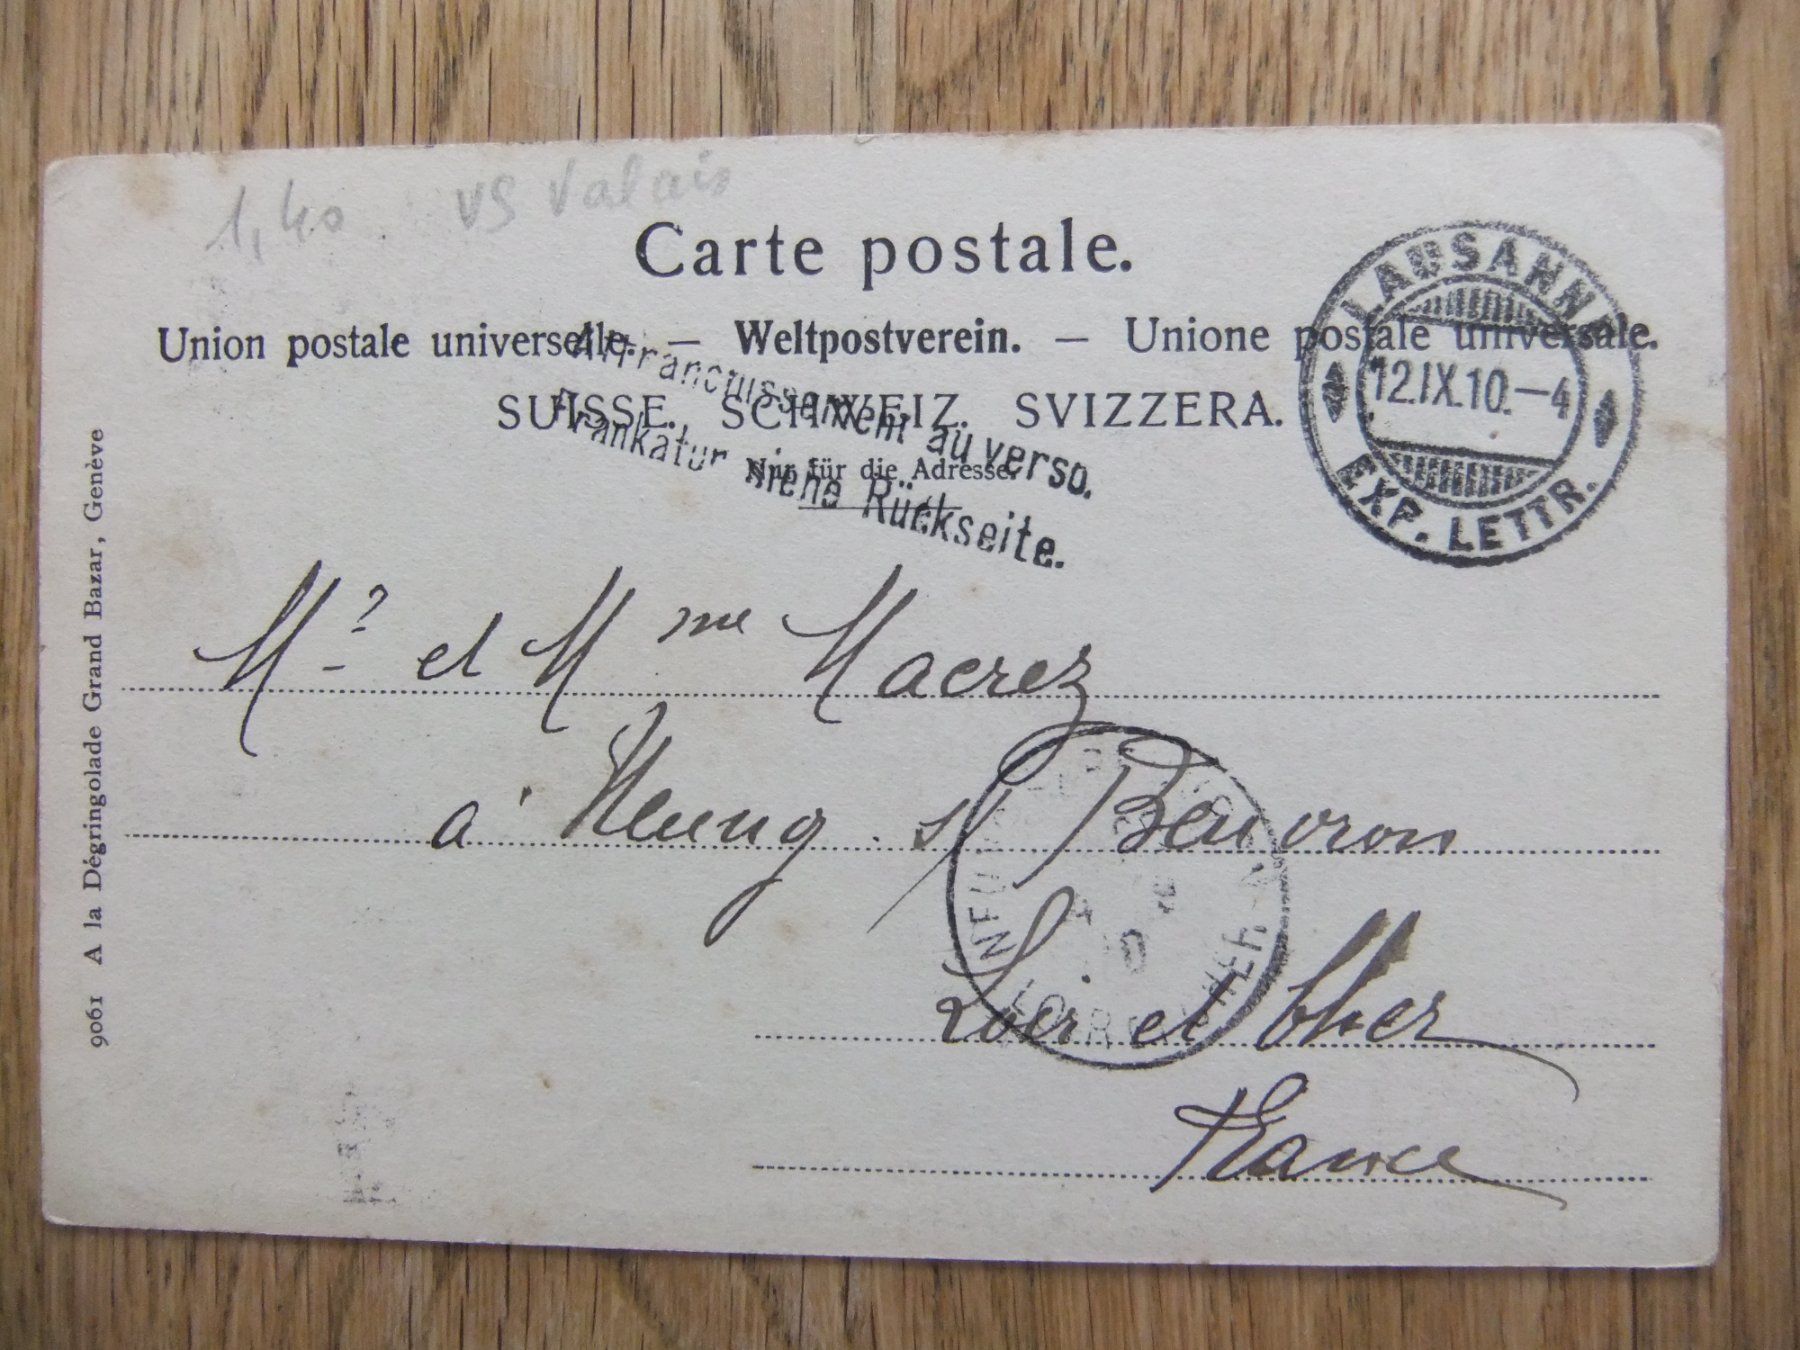 1,40 VS Valais
Carte postale.
Union postale universelle. — Weltpostverein. — Unione postale universale.
SUISSE. SCHWEIZ. SVIZZERA.
Nur für die Adresse.
Affranchissement au verso.
Frankatur siehe Rückseite.
LAUSANNE
12.IX.10.–4
EXP. LETTR.
Mr et Mme Macrez
à Neung s/ Beuvron
Loir et Cher
France
NEUNG
LOIR-ET-CHER
9061 A la Dégringolade Grand Bazar, Genève